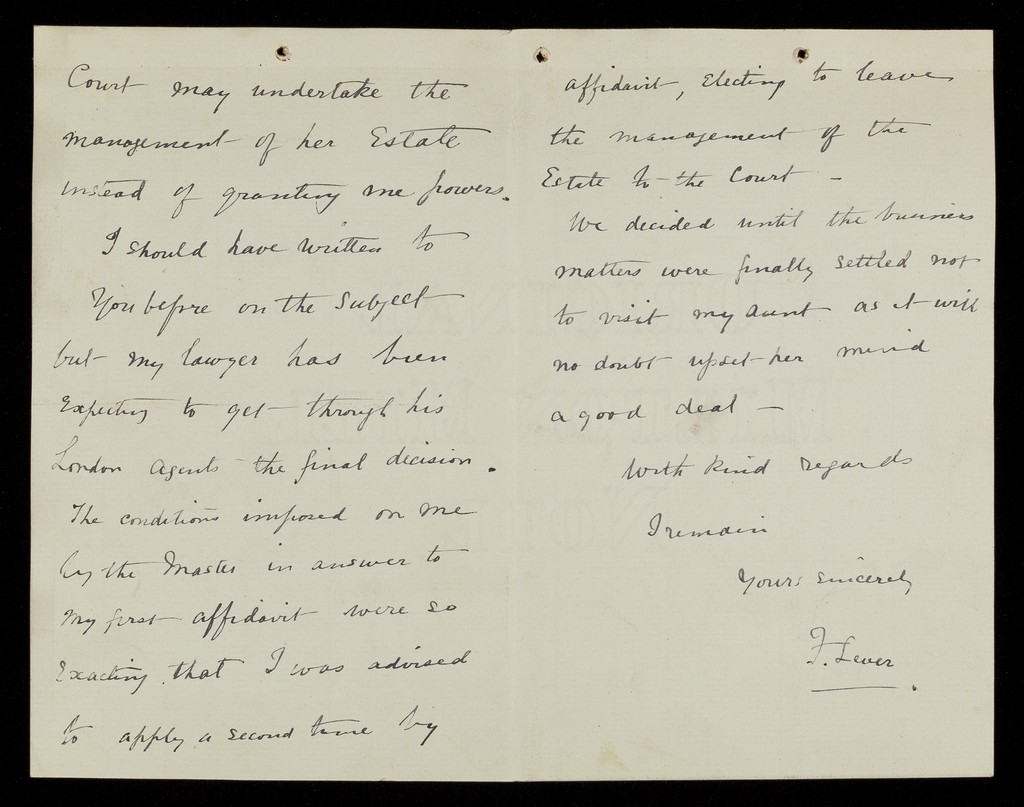 Court may undertake the
management of her Estate
instead of granting me powers.
I should have written to
you before on the subject
but my lawyer has been
Expecting to get through his
London Agents the final decision.
The conditions imposed on me
by the Master in answer to
my first affidavit were so
Exacting that I was advised
to apply a second time by
affidavit, Electing to leave
the management of the
Estate to the Court -
We decided until the business
matters were finally settled not
to visit my Aunt as it will
no doubt upset her mind
a good deal -
With kind regards
I remain
Yours sincerely
F. Lever